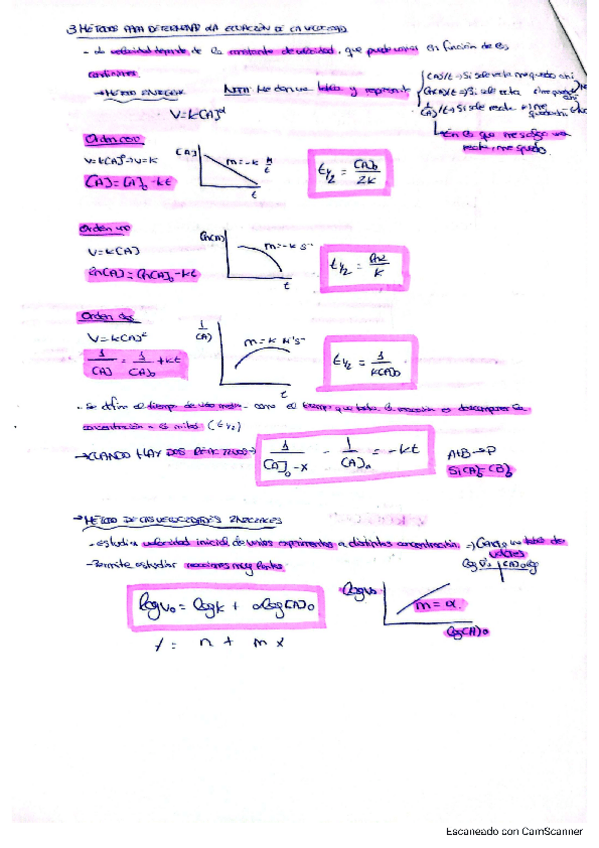 3 MÉTODOS PARA DETERMINAR LA ECUACIÓN DE LA VELOCIDAD
- la velocidad depende de la constante de velocidad, que puede variar en función de las
condiciones
→ MÉTODO INTEGRAL NOTA: Me dan una tabla y represento
[A]/t → Si sale recta me quedo ahí
ln[A]/t → Si sale recta
1/[A]/t → Si sale recta
En la que me salga una
recta, me quedo.
V=k[A]^α
Orden cero
V=k[A]⁰→V=k
[A]=[A]₀-kt
[A]
m=-k M/t
t
t₁/₂ = [A]₀/2k
Orden uno
V=k[A]
ln[A]=ln[A]₀-kt
ln[A]
m=-k s⁻¹
t
t₁/₂ = ln2/k
Orden dos
V=k[A]²
1/[A] = 1/[A]₀ +kt
1/[A]
m=k M⁻¹s⁻¹
t
t₁/₂ = 1/k[A]₀
- Se define el tiempo de vida media - como el tiempo que tarda la reacción en descomponer la
concentración a la mitad (t₁/₂)
→ CUANDO HAY DOS REACTIVOS→
1/[A]₀-x - 1/[A]₀ = -kt
A+B→P
Si [A]₀=[B]₀
→ MÉTODO DE LAS VELOCIDADES INICIALES
- estudia velocidad inicial de varios experimentos a distintas concentración. → Cuando una tabla de
valores
- Permite estudiar reacciones muy lentas
log V₀ = log k + αlog[A]₀
y = n + m x
log V₀
m=α.
log[A]₀
Escaneado con CamScanner